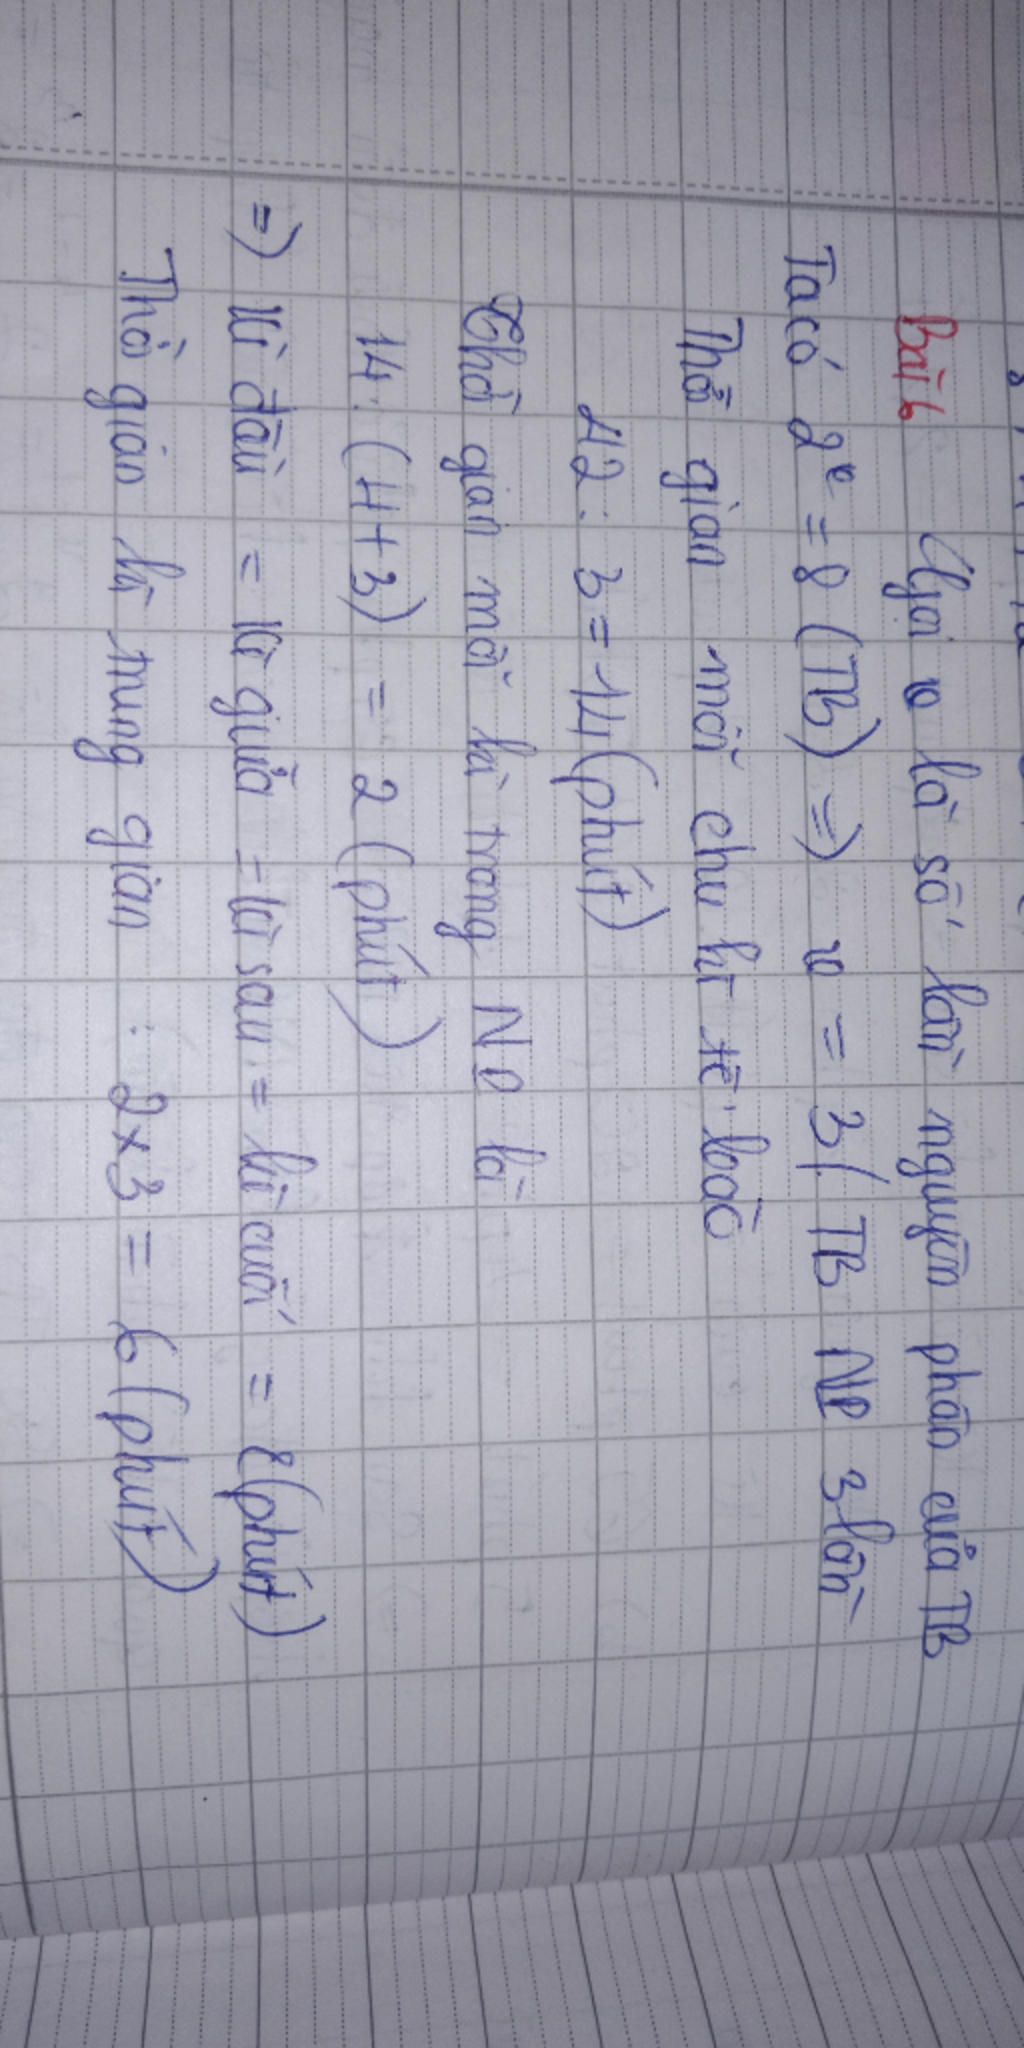 Bài 6 Gọi x là số lần nguyên phân của TB
Ta có 2ˣ = 8 (TB) => x = 3 / TB NP 3 lần
Thời gian mỗi chu kì tế bào
42 : 3 = 14 (phút)
Thời gian mỗi kì trong NP là
14 : (4+3) = 2 (phút)
=> Kì đầu = kì giữa = kì sau = kì cuối = 2 (phút)
Thời gian kì trung gian : 2×3 = 6 (phút)